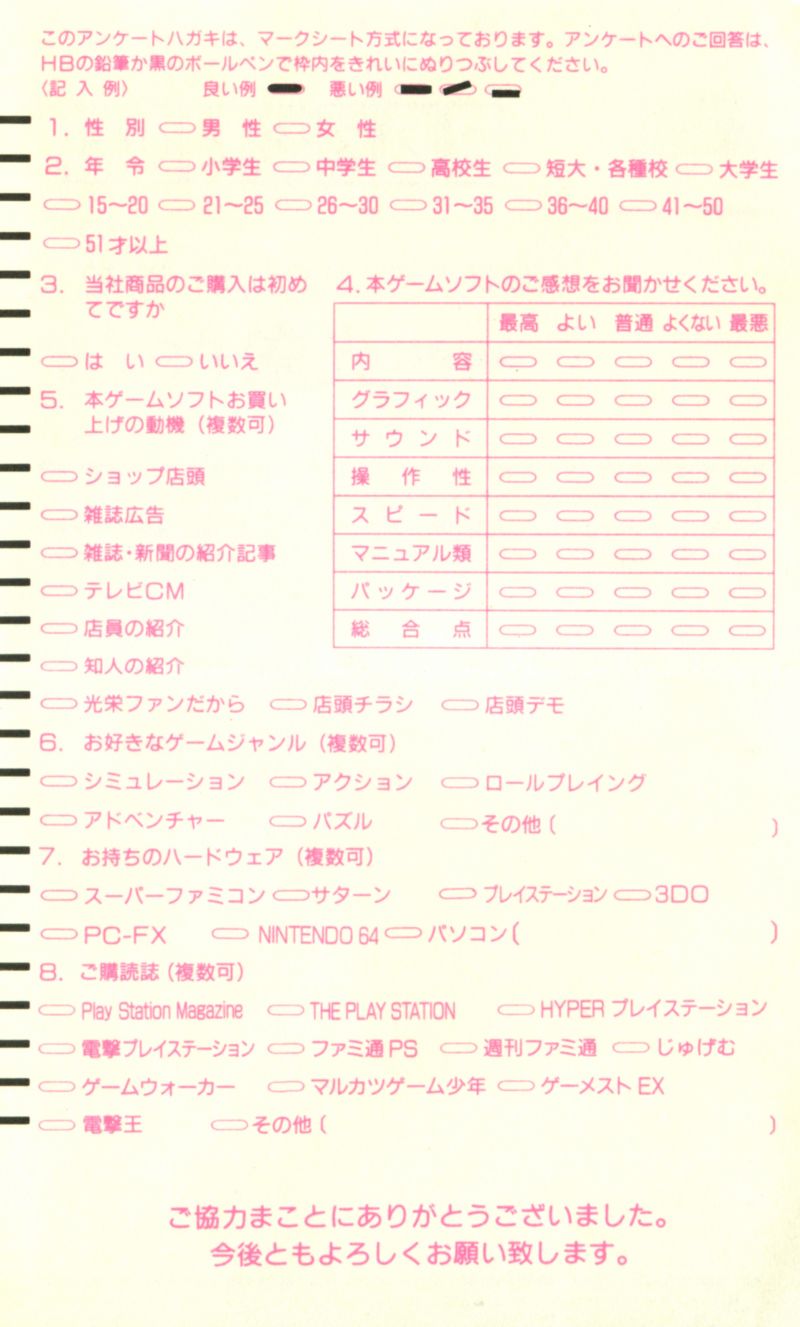 このアンケートハガキは、マークシート方式になっております。アンケートへのご回答は、
HBの鉛筆か黒のボールペンで枠内をきれいにぬりつぶしてください。
〈記入例〉 良い例 悪い例
1. 性別 男性 女性
2. 年令 小学生 中学生 高校生 短大・各種校 大学生
15〜20 21〜25 26〜30 31〜35 36〜40 41〜50
51才以上
3. 当社商品のご購入は初め
てですか
はい いいえ
4. 本ゲームソフトのご感想をお聞かせください。
最高 よい 普通 よくない 最悪
内容
グラフィック
サウンド
操作性
スピード
マニュアル類
パッケージ
総合点
5. 本ゲームソフトお買い
上げの動機（複数可）
ショップ店頭
雑誌広告
雑誌・新聞の紹介記事
テレビCM
店員の紹介
知人の紹介
光栄ファンだから 店頭チラシ 店頭デモ
6. お好きなゲームジャンル（複数可）
シミュレーション アクション ロールプレイング
アドベンチャー パズル その他（ ）
7. お持ちのハードウェア（複数可）
スーパーファミコン サターン プレイステーション 3DO
PC-FX NINTENDO 64 パソコン（ ）
8. ご購読誌（複数可）
Play Station Magazine THE PLAY STATION HYPER プレイステーション
電撃プレイステーション ファミ通PS 週刊ファミ通 じゅげむ
ゲームウォーカー マルカツゲーム少年 ゲーメスト EX
電撃王 その他（ ）
ご協力まことにありがとうございました。
今後ともよろしくお願い致します。